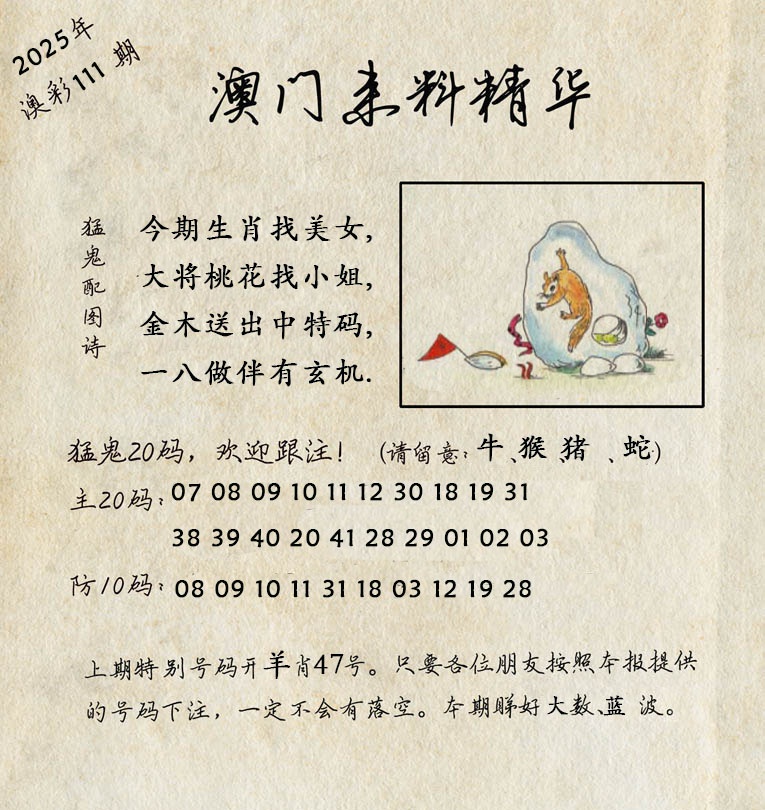 2025年
澳彩111 期
澳门来料精华
猛鬼配图诗
今期生肖找美女,
大将桃花找小姐,
金木送出中特码,
一八做伴有玄机.
猛鬼20码，欢迎跟注！（请留意：牛、猴、猪、蛇）
主20码：07 08 09 10 11 12 30 18 19 31
38 39 40 20 41 28 29 01 02 03
防10码：08 09 10 11 31 18 03 12 19 28
上期特别号码开羊肖47号。只要各位朋友按照本报提供
的号码下注，一定不会有落空。本期睇好大数、蓝 波。